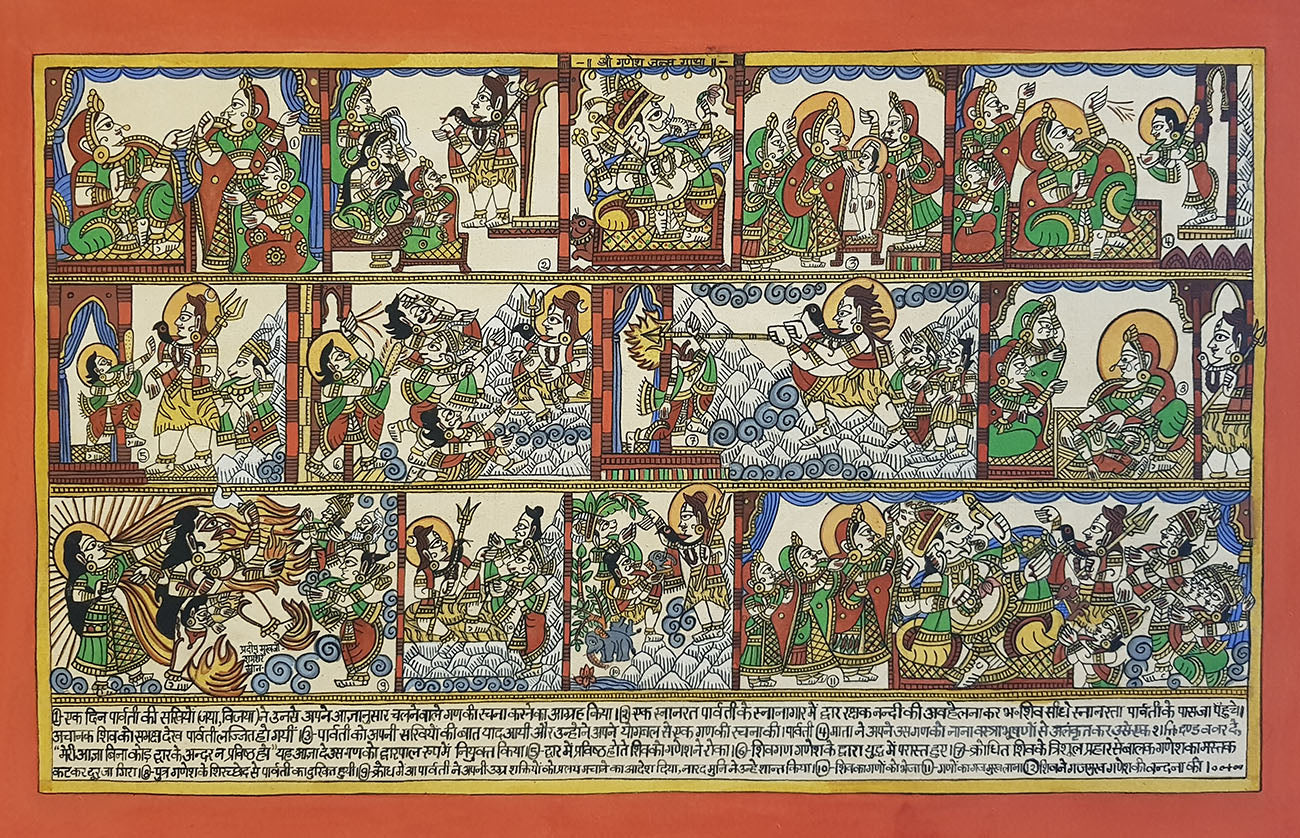 -॥ श्री गणेश जन्म गाथा ॥-
१
२
३
४
५
७
८
प्रदीप मुखर्जी
९
११
१-एक दिन पार्वती की सखियों (जया, विजया) ने उनसे अपने आज्ञानुसार चलनेवाले गण की रचना करने का आग्रह किया। २ एक स्नानरत पार्वती के स्नानागार में द्वार रक्षक नन्दी की अवहेलना कर भ० शिव सीधे स्नानरता पार्वती के पास जा पंहुचे।
अचानक शिव को समक्ष देख पार्वती लज्जित हो गयीं ३-पार्वती को अपनी सखियों की बात याद आयी और उन्होने अपने योगबल से एक गण की रचना की। पार्वती ४ माता ने अपने उस गण को नाना वस्त्राभूषणों से अलंकृत कर उसे एक शक्तिदण्ड व वर दे,
"मेरी आज्ञा बिना कोई द्वार के अन्दर न प्रविष्ठ हो" यह आज्ञा दे उस गण को द्वारपाल रुप में नियुक्त किया। ५-द्वार में प्रविष्ठ होते शिव को गणेश ने रोका। ६-शिवगण गणेश के द्वारा युद्ध में परास्त हुए। ७-क्रोधित शिव के त्रिशूल प्रहार से बालक गणेश का मस्तक
कटकर दूर जा गिरा। ८-पुत्र गणेश के शिरच्छेद से पार्वती का दुखित हुयी। ९-क्रोध में आ पार्वती ने अपनी उग्र शक्तियों को प्रलय मचाने का आदेश दिया, नारद मुनि ने उन्हे शान्त किया। १०-शिव का गणों को भेजा ११-गणों का गजमुख लाना १२ शिव ने गजमुख गणेश की वन्दना की।